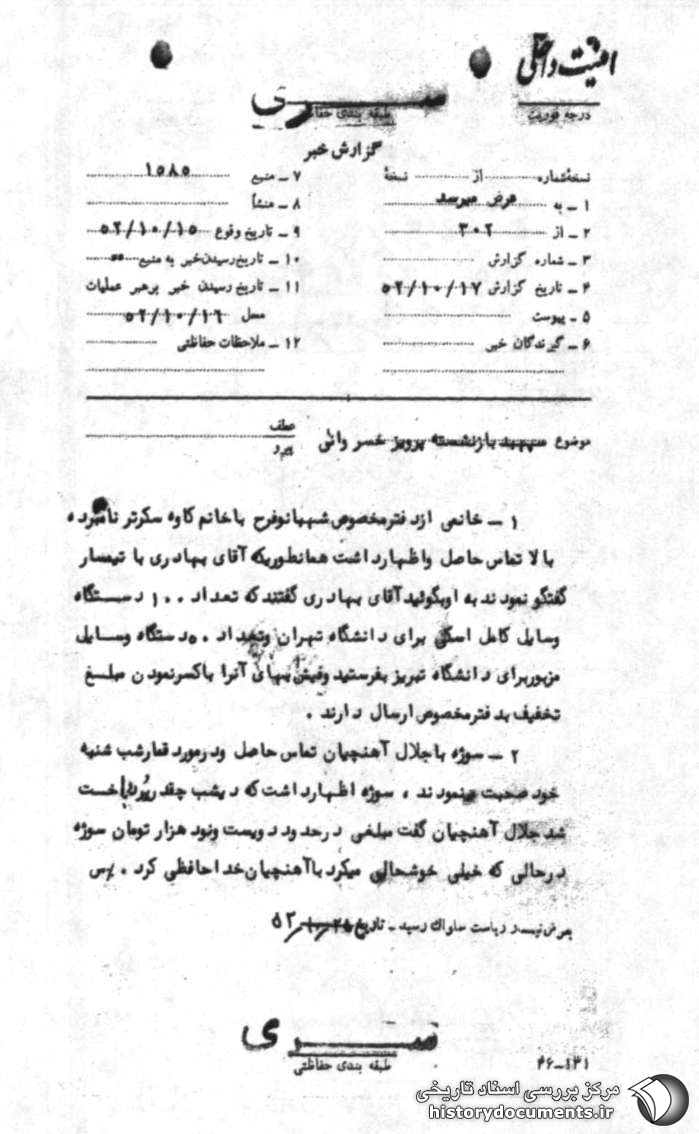 امنیت داخلی
درجه فوریت
سری
طبقه بندی حفاظتی
گزارش خبر
نسخهٔ شماره از نسخهٔ
۱ – به عرض میرسد
۲ – از ۳۰۲
۳ – شماره گزارش
۴ – تاریخ گزارش ۵۲/۱۰/۱۷
۵ – پیوست
۶ – گیرندگان خبر
۷ – منبع ۱۵۸۵
۸ – منشأ
۹ – تاریخ وقوع ۵۲/۱۰/۱۵
۱۰ – تاریخ رسیدن خبر به منبع
۱۱ – تاریخ رسیدن خبر برهبر عملیات
محل ۵۲/۱۰/۱۶
۱۲ – ملاحظات حفاظتی
موضوع سپهبد بازنشسته پرویز خسروانی
عطف
پیرو
۱ – خانمی از دفتر مخصوص شهبانو فرح با خانم کاوه سکرتر نامبرده
بالا تماس حاصل و اظهار داشت همانطوریکه آقای بهادری با تیمسار
گفتگو نمودند به او بگوئید آقای بهادری گفتند که تعداد ۱۰۰ دستگاه
وسایل کامل اسکی برای دانشگاه تهران و تعداد ۵۰ دستگاه وسایل
مزبور برای دانشگاه تبریز بفرستید و فیش بهای آنرا با کسر نمودن مبلغ
تخفیف بدفتر مخصوص ارسال دارند .
۲ – سوژه با جلال آهنچیان تماس حاصل و در مورد قمار شب شنبه
خود صحبت مینمودند ، سوژه اظهار داشت که دیشب چقدر برد باخت
شد جلال آهنچیان گفت مبلغی در حدود دویست و نود هزار تومان سوژه
در حالی که خیلی خوشحالی میکرد با آهنچیان خداحافظی کرد . س
بعرض تیمسار ریاست ساواک رسید – تاریخ ۵۲
سری
طبقه بندی حفاظتی
۲۶–۱۳۱
مرکز بررسی اسناد تاریخی
historydocuments.ir